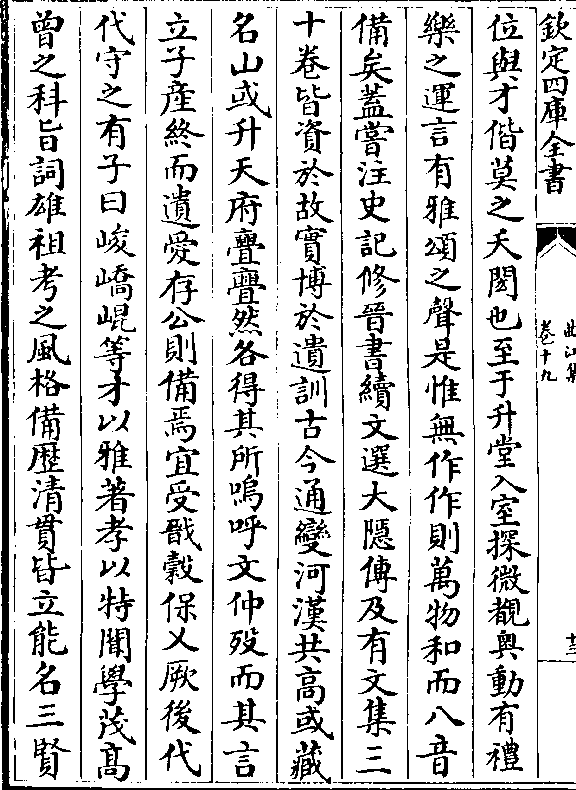 欽定四庫全書
曲江集
卷十九
十三
位與才偕莫之夭閼也至于升堂入室探微覩奥動有禮
樂之運言有雅頌之聲是惟無作作則萬物和而八音
備矣蓋嘗注史記修晉書續文選大隱傳及有文集三
十卷皆資於故實博於遺訓古今通變河漢共高或藏
名山或升天府亹亹然各得其所嗚呼文仲歿而其言
立子産終而遺愛存公則備焉宜受戩穀保乂厥後代
代守之有子曰峻嶠崐等才以雅著孝以特聞學茂髙
曾之科旨詞雄祖考之風格備歴清貫皆立能名三賢